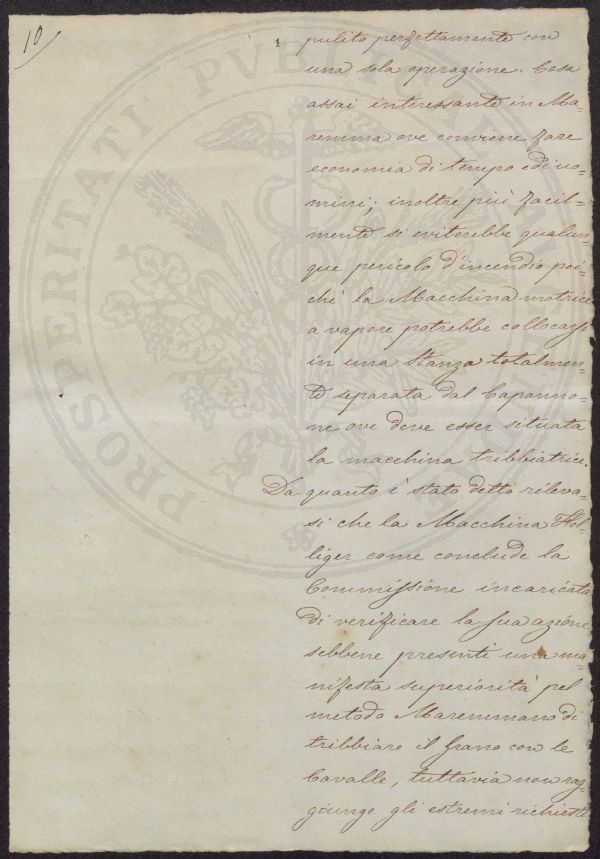 10
1
pulito perfettamente con
una sola operazione. Cosa
assai interessante in Ma-
remma ove conviene fare
economia di tempo e di uo-
mini; inoltre più facil-
mente si eviterebbe qualun-
que pericolo d'incendio poi-
chè la Macchina motrice
a vapore potrebbe collocarsi
in una Stanza totalmen-
te separata dal Capanno-
ne ove deve esser situata
la macchina tribbiatrice.
Da quanto è stato detto rileva-
si che la Macchina
liger come conclude la
Commissione incaricata
di verificare la sua azione
sebbene presenti una ma-
nifesta superiorità pel
metodo Maremmano di
tribbiare il grano con le
Cavalle, tuttavia non rag-
giunge gli estremi richiesti
PROSPERITATI